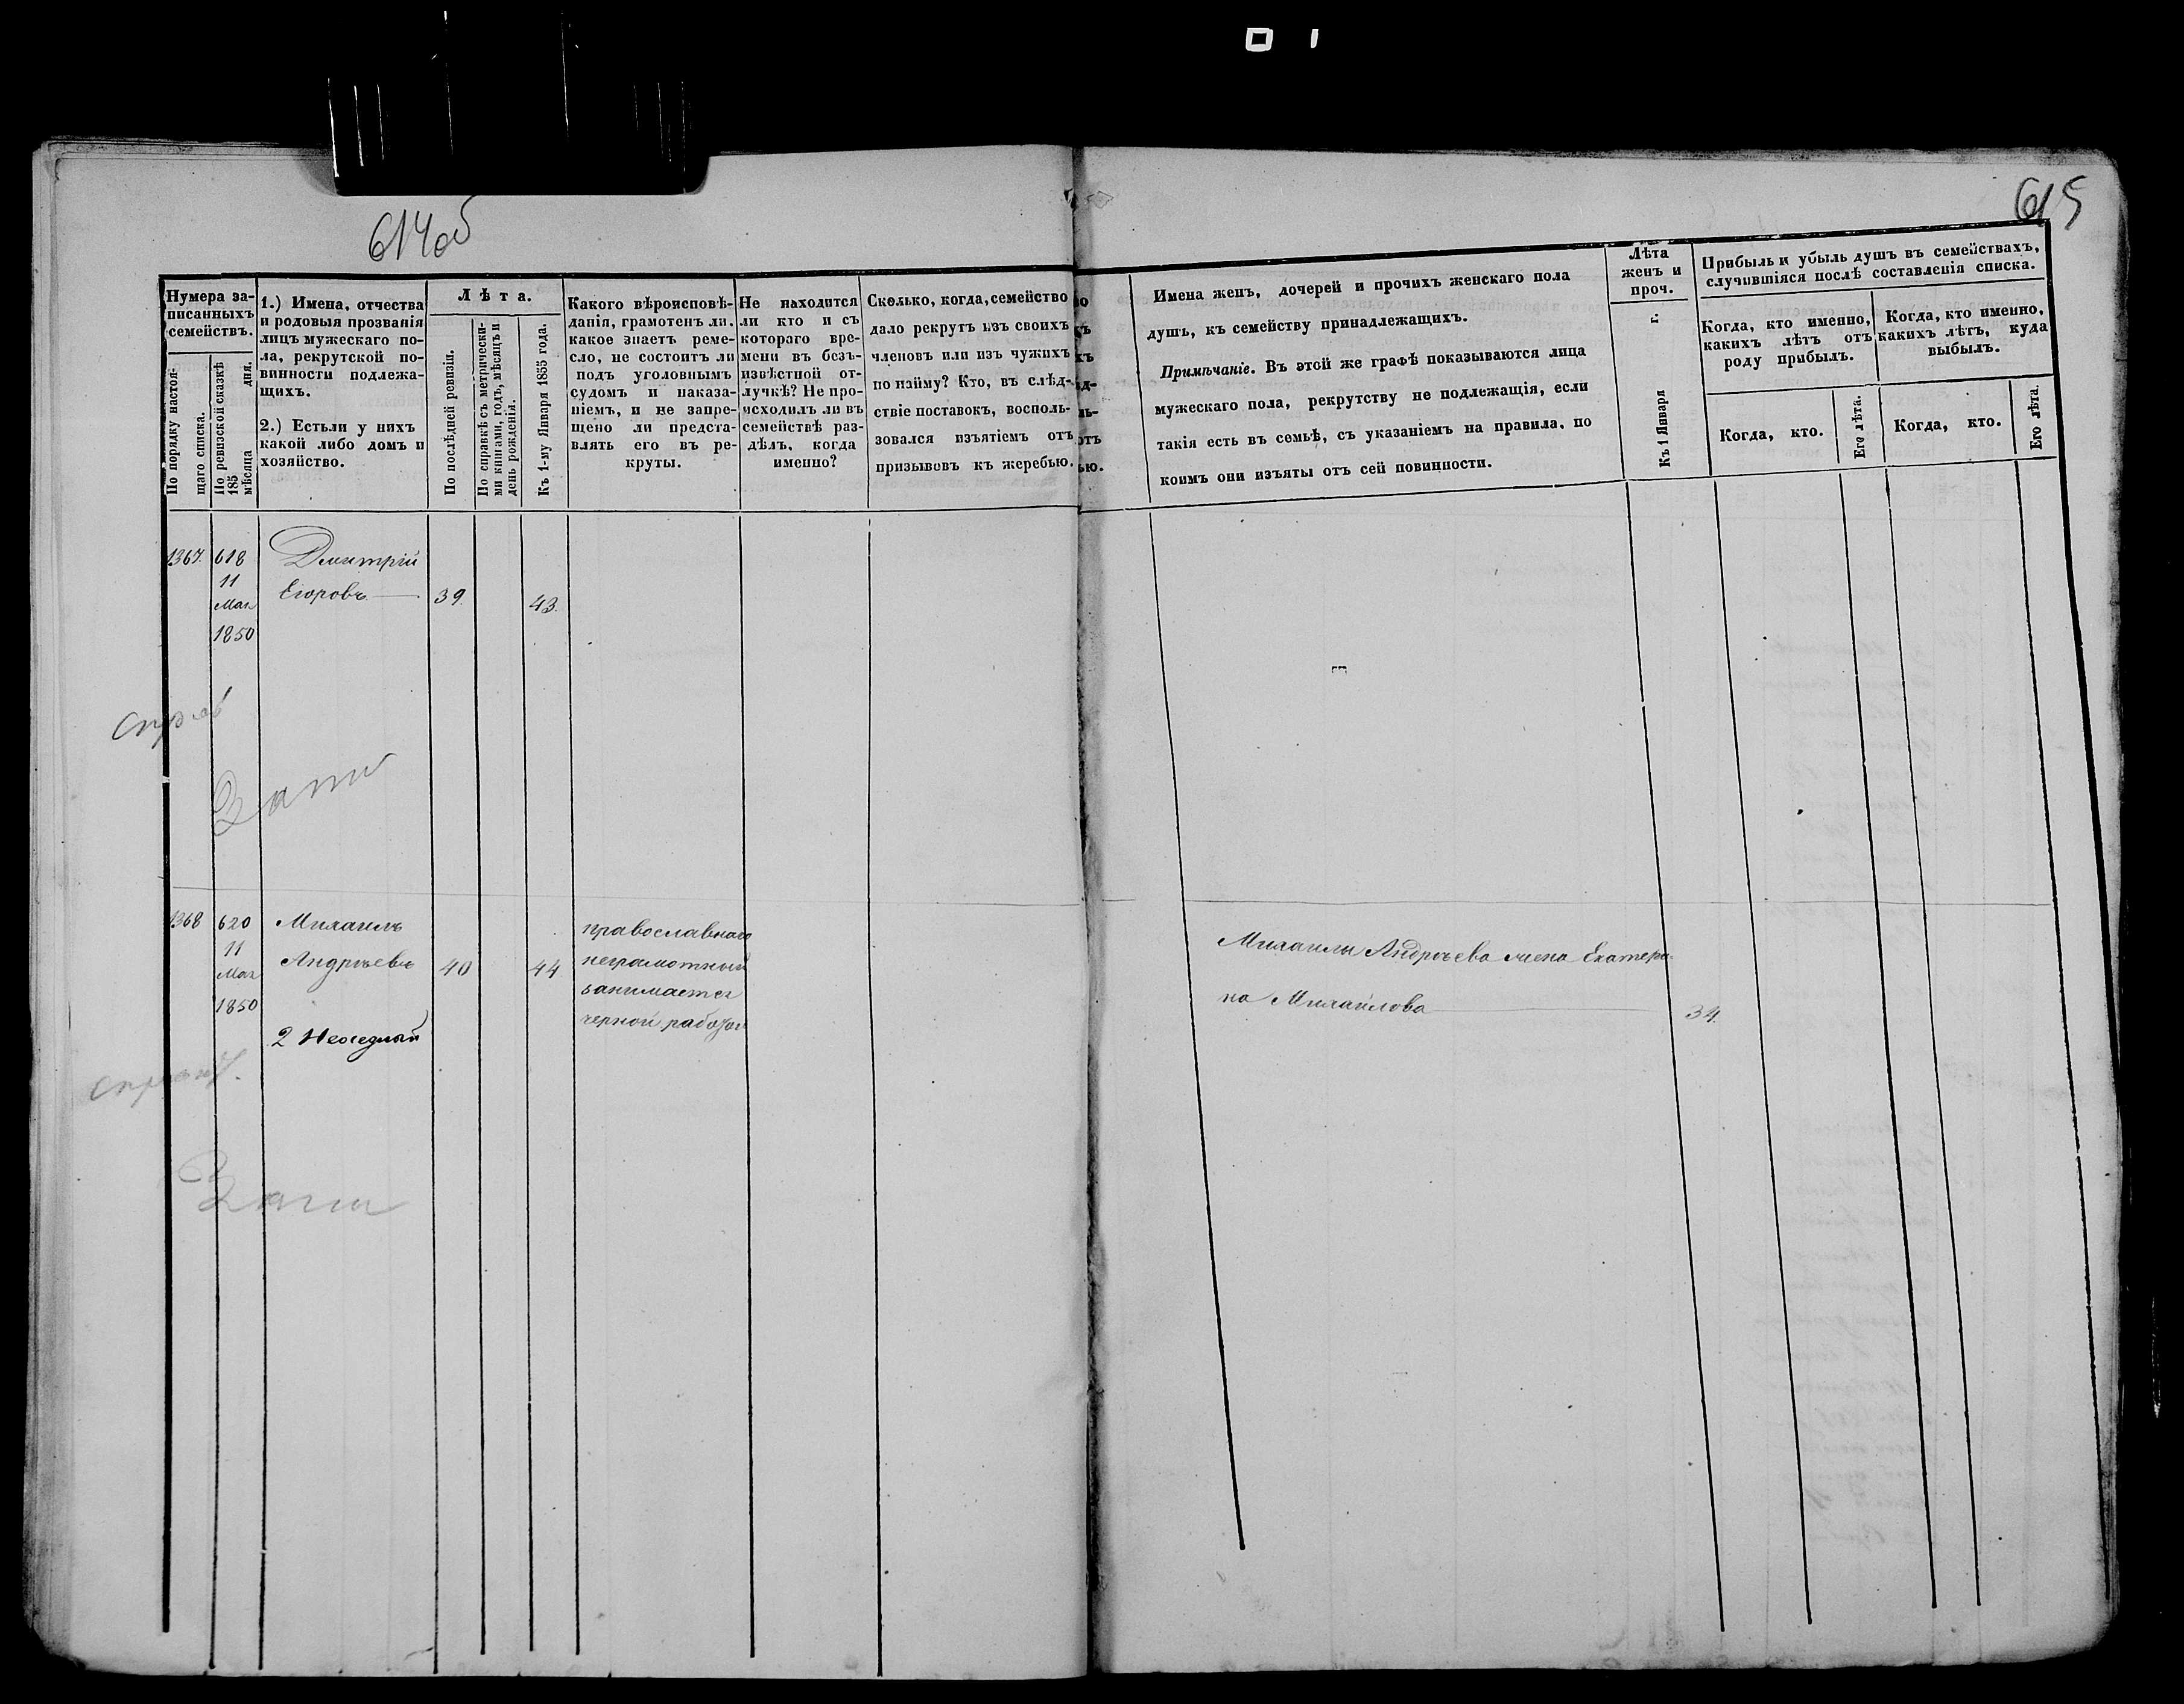 614об
615
Нумера за-
писанныхъ
семействъ.
По порядку настоя-
щаго списка.
По ревизской сказкѣ
185 дня,
мѣсяца
1.) Имена, отчества
и родовыя прозванія
лицъ мужескаго по-
ла, рекрутской по-
винности подлежа-
щихъ.
2.) Естьли у нихъ
какой либо домъ и
хозяйство.
Лѣта.
По послѣдней ревизіи.
По справкѣ съ метрически-
ми книгами, годъ, мѣсяцъ и
день рожденія.
Къ 1-му Января 1855 года.
Какого вѣроисповѣ-
данія, грамотенъ ли.
какое знаетъ реме-
сло, не состоитъ ли
подъ уголовнымъ
судомъ и наказа-
ніемъ, и не запре-
щено ли предста-
влять его въ ре-
круты.
Не находится
ли кто и съ
котораго вре-
мени въ безъ-
извѣстной от-
лучкѣ? Не про-
исходилъ ли въ
семействѣ раз-
дѣлъ, когда
именно?
Сколько, когда, семейство
дало рекрутъ изъ своихъ
членовъ или изъ чужихъ
по найму? Кто, въ слѣд-
ствіе поставокъ, восполь-
зовался изъятіемъ отъ
призывовъ къ жеребью.
Имена женъ, дочерей и прочихъ женскаго пола
душъ, къ семейству принадлежащихъ.
Примѣчаніе. Въ этой же графѣ показываются лица
мужескаго пола, рекрутству не подлежащія, если
такія есть въ семьѣ, съ указаніемъ на правила, по
коимъ они изъяты отъ сей повинности.
Лѣта
женъ и
проч.
Къ 1 Января г.
Прибыль и убыль душъ въ семействахъ,
случившіяся послѣ составленія списка.
Когда, кто именно,
какихъ лѣтъ отъ
роду прибылъ.
Когда, кто.
Его лѣта.
Когда, кто именно,
какихъ лѣтъ, куда
выбылъ.
Когда, кто.
Его лѣта.
1367. 618 Дмитрій
11
Мая Егоровъ 39. 43.
1850
1368 620 Михаилъ православнаго
11
Мая Андреевъ 40 44 неграмотный
занимается
1850 черной работой
2 Неоседлый
Михаилы Андреева жена Екатери
на Михайлова 34.